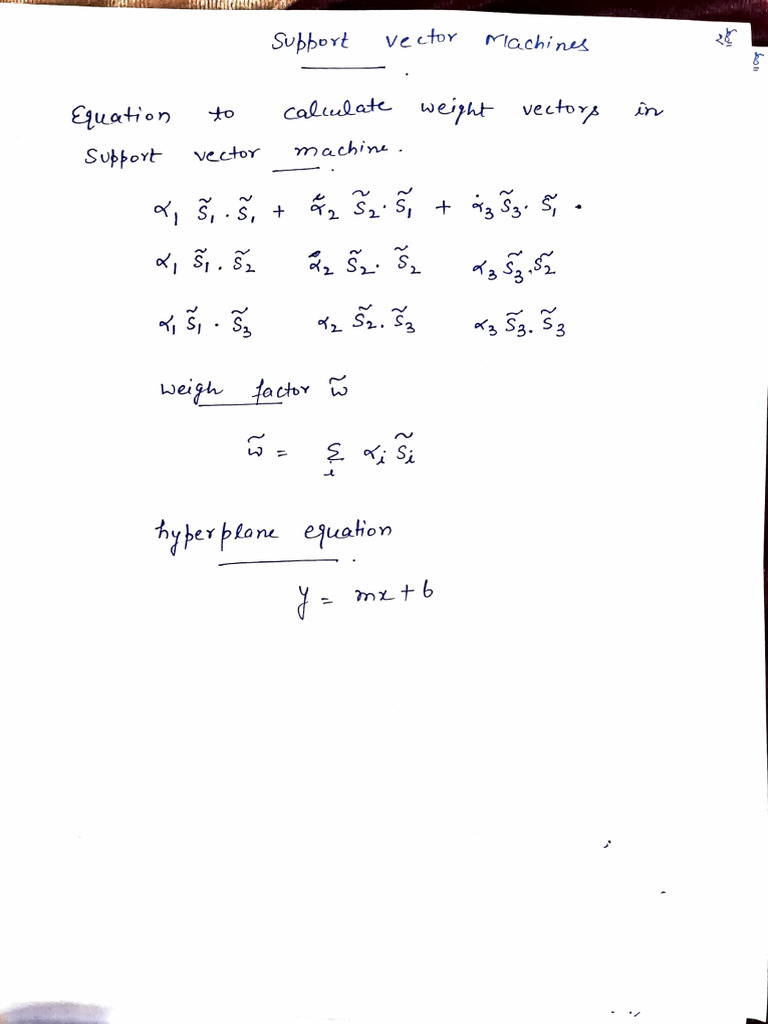 Support vector Machines
Equation to calculate weight vectors in
Support vector machine.
α₁ S̃₁ . S̃₁ + α₂ S̃₂ . S̃₁ + α₃ S̃₃ . S̃₁
α₁ S̃₁ . S̃₂ α₂ S̃₂ . S̃₂ α₃ S̃₃ . S̃₂
α₁ S̃₁ . S̃₃ α₂ S̃₂ . S̃₃ α₃ S̃₃ . S̃₃
weigh factor w̃
w̃ = Σᵢ αᵢ S̃ᵢ
hyperplane equation
y = mx + b